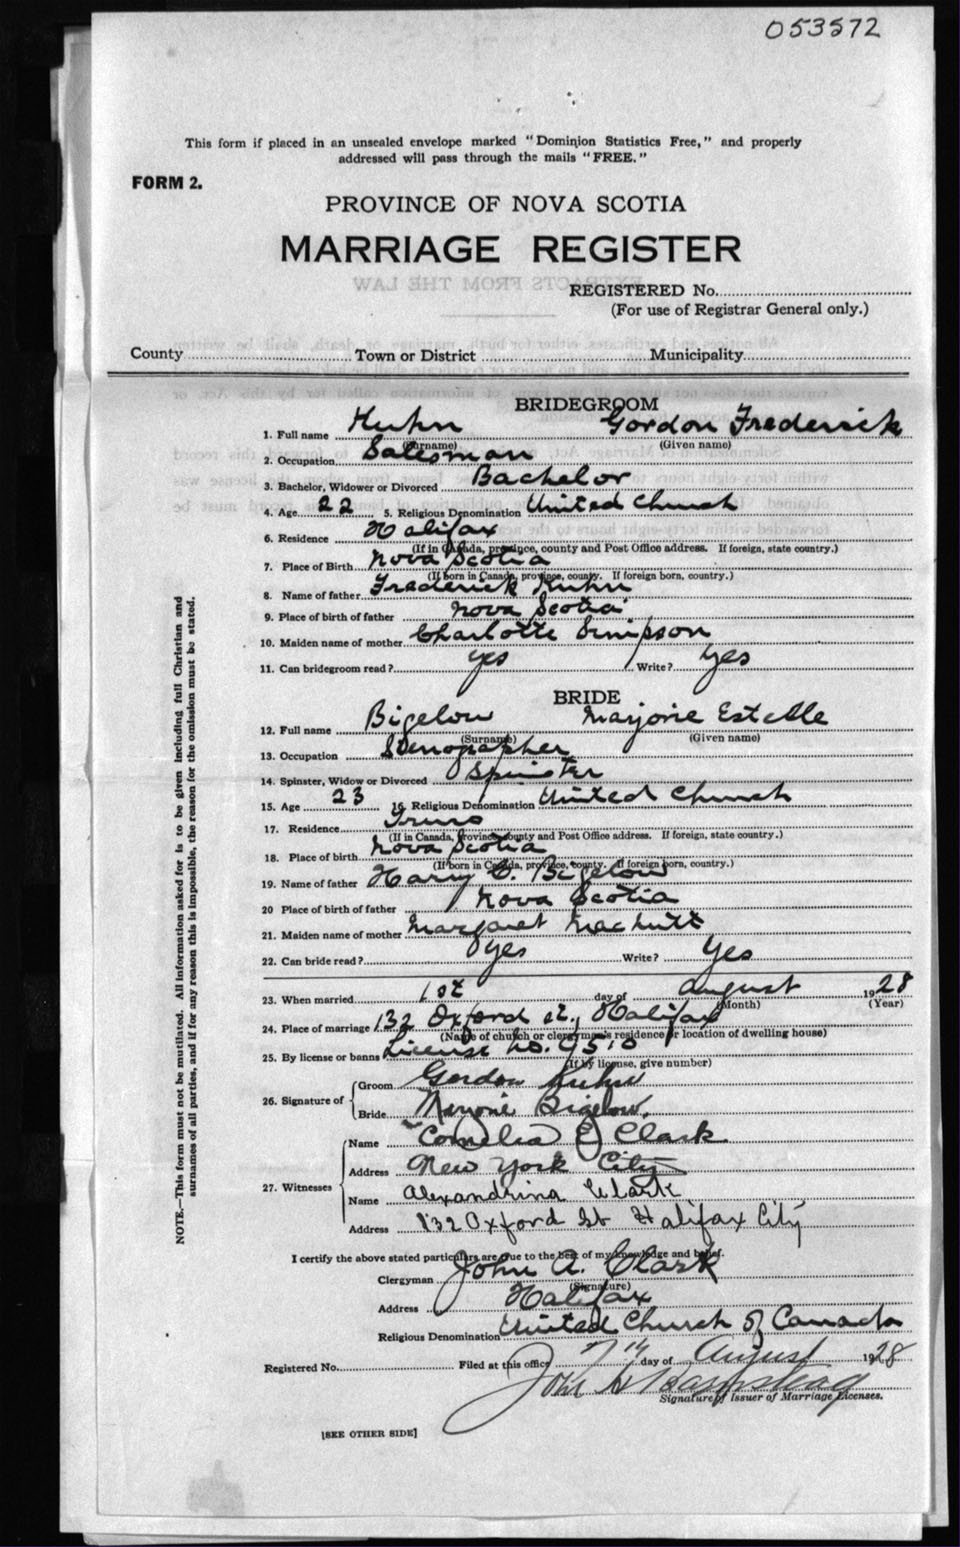 053572
This form if placed in an unsealed envelope marked "Dominion Statistics Free," and properly
addressed will pass through the mails "FREE."
FORM 2.
PROVINCE OF NOVA SCOTIA
MARRIAGE REGISTER
REGISTERED No.
(For use of Registrar General only.)
County Town or District Municipality
BRIDEGROOM
1. Full name Kuhn Gordon Frederick
(Surname) (Given name)
2. Occupation Salesman
3. Bachelor, Widower or Divorced Bachelor
4. Age 22 5. Religious Denomination United Church
6. Residence Halifax
(If in Canada, province, county and Post Office address. If foreign, state country.)
7. Place of Birth Nova Scotia
(If born in Canada, province, county. If foreign born, country.)
8. Name of father Frederick Kuhn
9. Place of birth of father Nova Scotia
10. Maiden name of mother Charlotte Simpson
11. Can bridegroom read? yes Write? yes
BRIDE
12. Full name Bigelow Marjorie Estelle
(Surname) (Given name)
13. Occupation Stenographer
14. Spinster, Widow or Divorced Spinster
15. Age 23 16. Religious Denomination United Church
17. Residence Truro
(If in Canada, province, county and Post Office address. If foreign, state country.)
18. Place of birth Nova Scotia
(If born in Canada, province, county. If foreign born, country.)
19. Name of father Harry C. Bigelow
20 Place of birth of father Nova Scotia
21. Maiden name of mother Margaret
22. Can bride read? yes Write? Yes
23. When married 1st day of August 1928
(Month) (Year)
24. Place of marriage 132 Oxford St., Halifax
(Name of church or clergymen's residence or location of dwelling house)
25. By license or banns License no.
(If by license, give number)
26. Signature of Groom Gordon Kuhn
Bride Marjorie Bigelow.
27. Witnesses Name Cornelia E Clark
Address New York City
Name Alexandrina Clark
Address 132 Oxford St Halifax City
I certify the above stated particulars are true to the best of my knowledge and belief.
Clergyman John A. Clark
(Signature)
Address Halifax
Religious Denomination United Church of Canada
Registered No. Filed at this office 7th day of August 1928
John
Signature of Issuer of Marriage Licenses.
[SEE OTHER SIDE]
NOTE.—This form must not be mutilated. All information asked for is to be given including full Christian and
surnames of all parties, and if for any reason this is impossible, the reason for the omission must be stated.